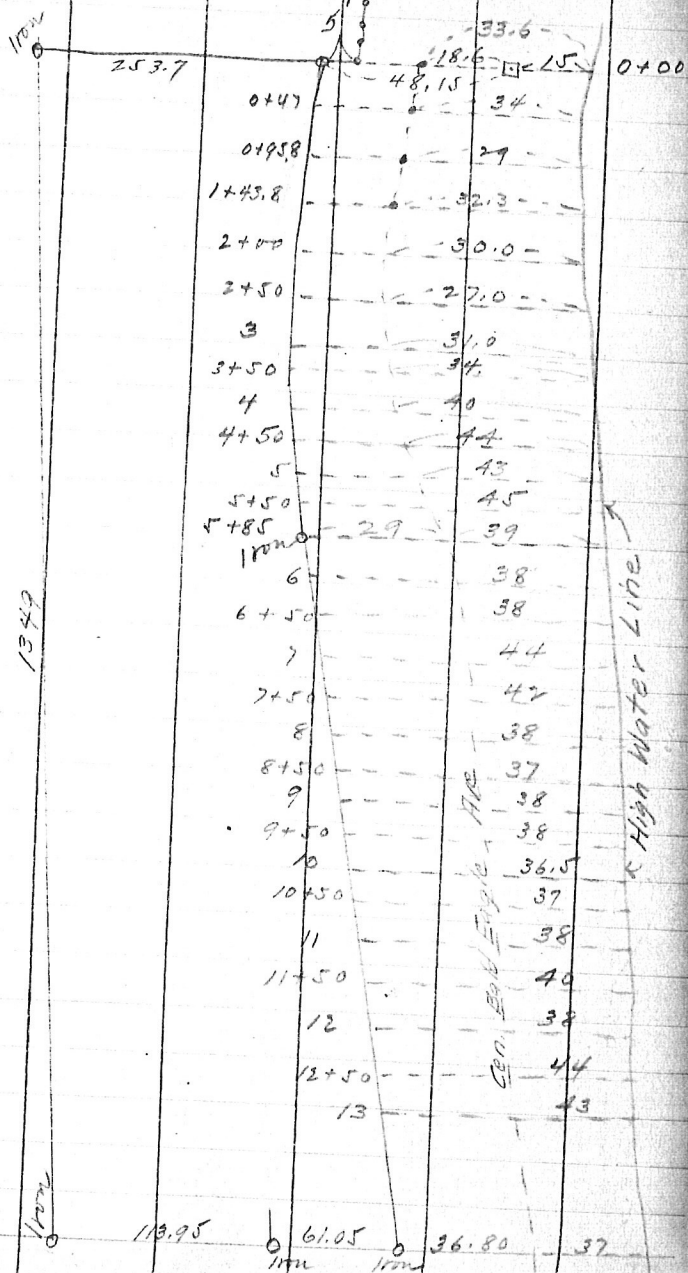 5
33.6
Iron 253.7 18.6 15 0+00
48.15
0+47 34
0+95.8 29
1+43.8 32.3
2+00 30.0
2+50 27.0
3 31.0
3+50 34.
4 40
4+50 44
5 43
5+50 45
5+85 29 39
Iron
6 38
6+50 38
7 44
7+50 42
8 38
8+50 37
9 38
9+50 38
10 36.5
10+50 37
11 38
11+50 40
12 38
12+50 44
13 43
1349
Cen. Bald Eagle Ave
High Water Line
Iron 113.95 61.05 36.80 37
Iron Iron